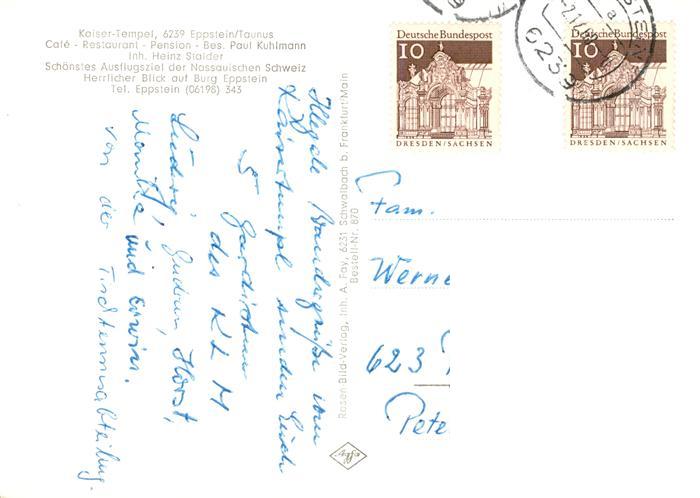 Kaiser-Tempel, 6239 Eppstein/Taunus
Café - Restaurant - Pension - Bes. Paul Kuhlmann
Inh. Heinz Stalder
Schönstes Ausflugsziel der Nassauischen Schweiz
Herrlicher Blick auf Burg Eppstein
Tel. Eppstein (06198) 343
Deutsche Bundespost
10
DRESDEN/SACHSEN
Deutsche Bundespost
10
DRESDEN/SACHSEN
6239
Wandergrüße vom
Kaisertempel senden Euch
5
des
Ludwig, Gudrun, Horst,
Monika und Erwin.
von der Tischtennisabteilung.
Rosen Bild-Verlag, Inh. A. Fay, 6231 Schwalbach b. Frankfurt/Main
Bestell-Nr. 870
Agfa
Fam.
Werne
623
Pete